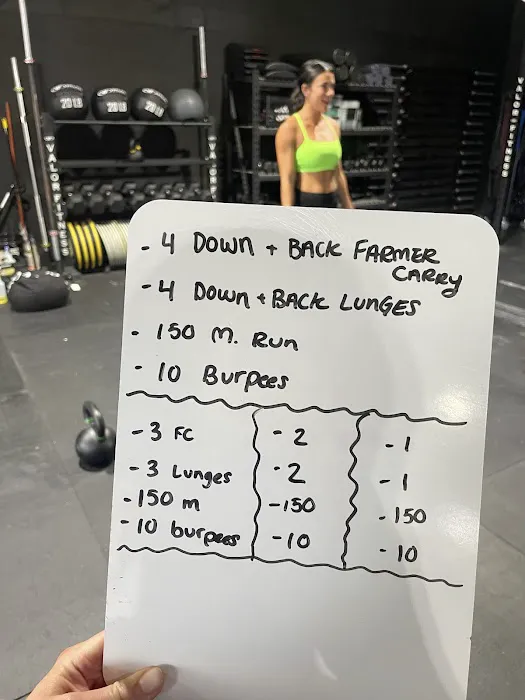 20 LB
20 LB
20 LB
VALOR FITNESS
VALOR FITNESS
VALOR FITNESS
- 4 DOWN + BACK FARMER
CARRY
- 4 DOWN + BACK LUNGES
- 150 M. RUN
- 10 Burpees
- 3 FC
- 3 Lunges
- 150 m
- 10 burpees
- 2
- 2
- 150
- 10
- 1
- 1
- 150
- 10